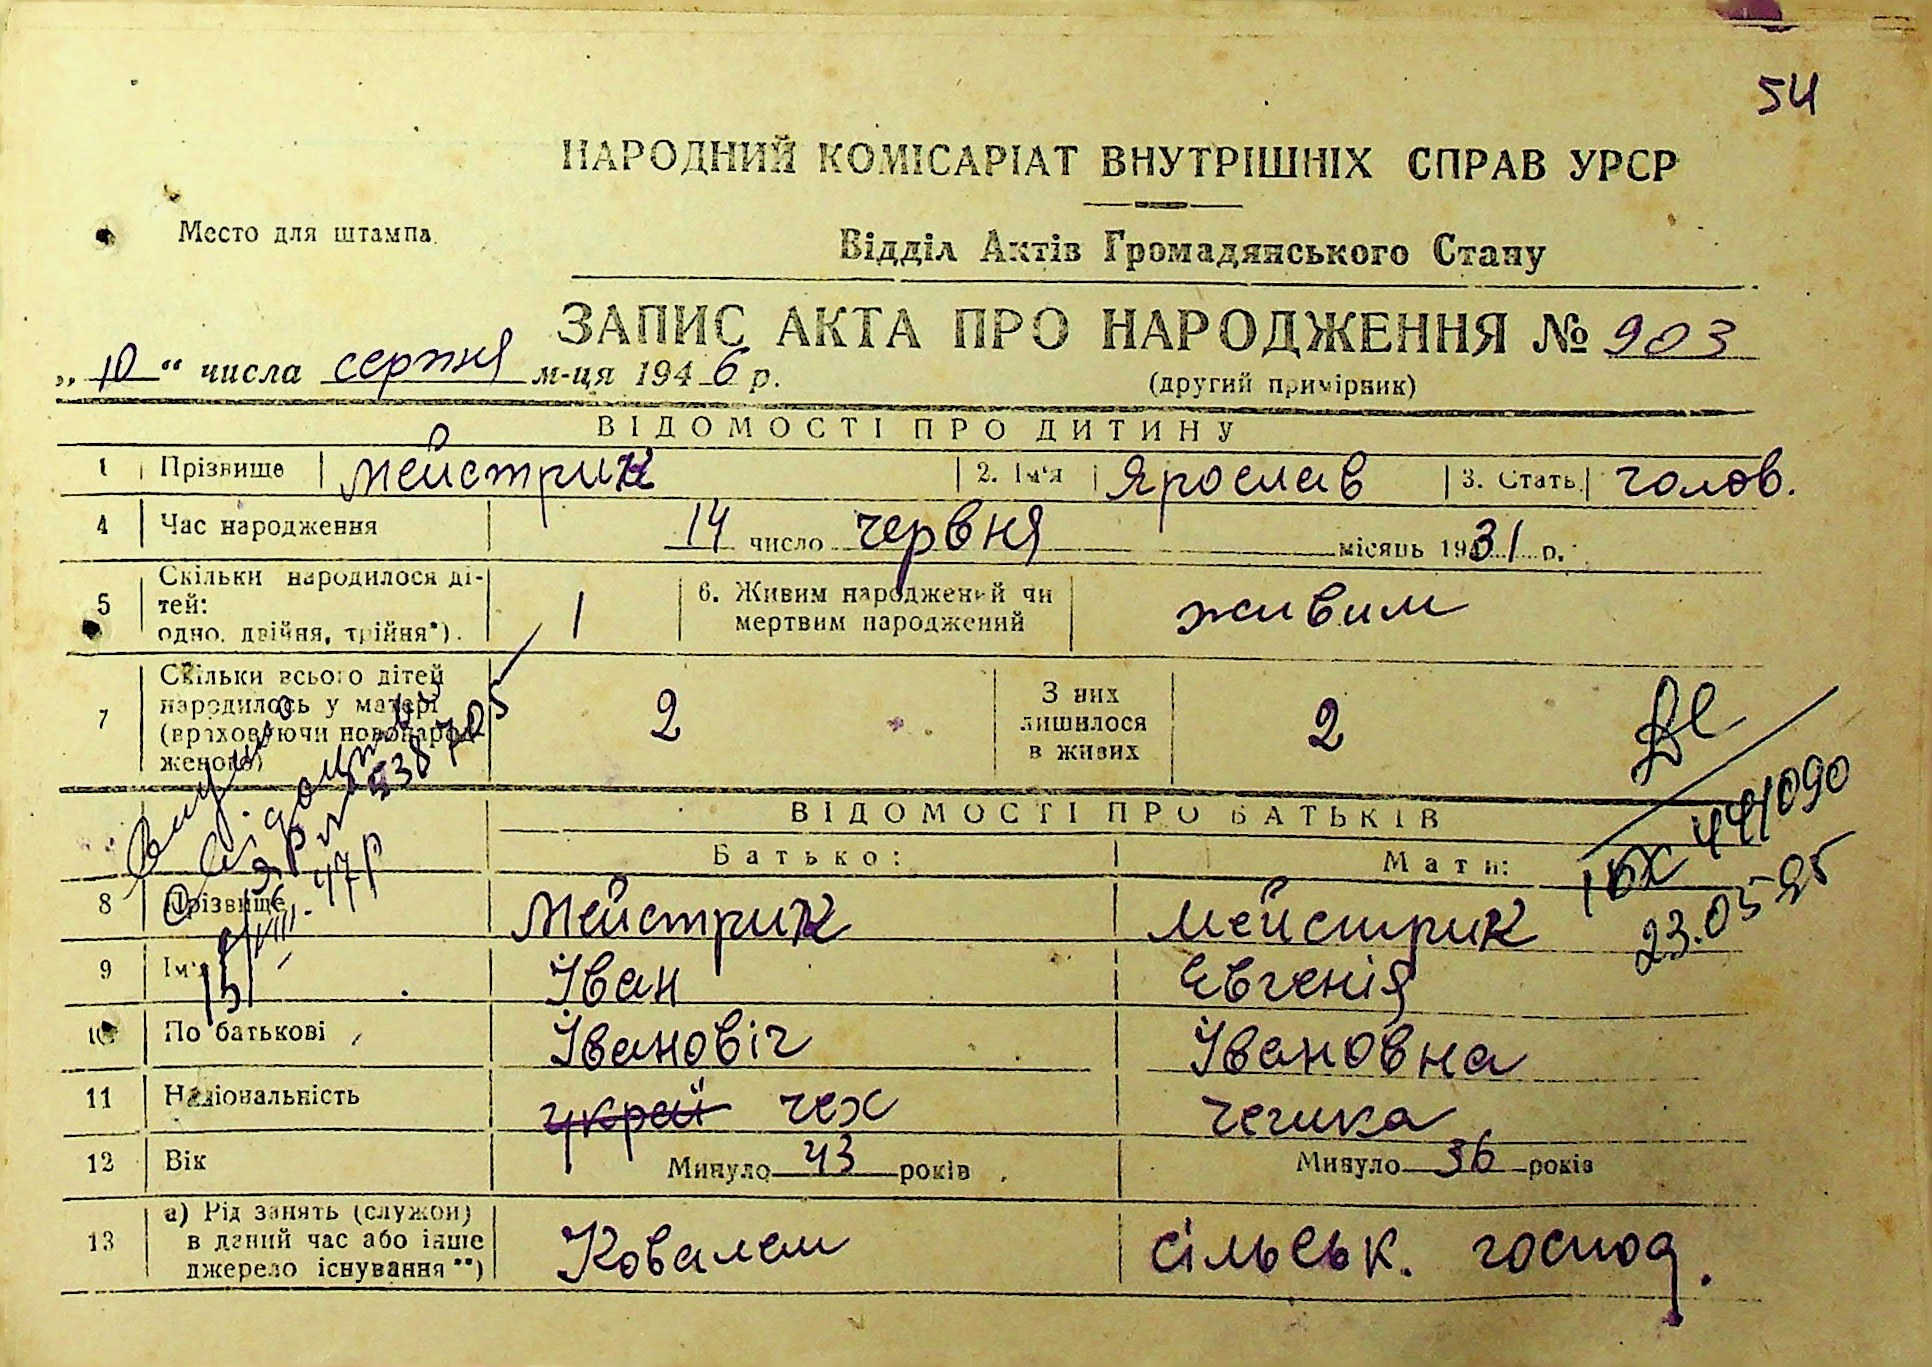 54
НАРОДНИЙ КОМІСАРІАТ ВНУТРІШНІХ СПРАВ УРСР
Место для штампа.
Відділ Актів Громадянського Стану
ЗАПИС АКТА ПРО НАРОДЖЕННЯ № 903
„ 10 “ числа серпня м-ця 194 6 р.
(другий примірник)
ВІДОМОСТІ ПРО ДИТИНУ
1 Прізвище Мейстрик 2. Ім'я Ярослав 3. Стать чолов.
4 Час народження 14 число червня місяць 1931 р.
5 Скільки народилося ді-
тей:
одно, двійня, трійня*). 1
6. Живим народжений чи
мертвим народжений живим
7 Скільки всього дітей
народилось у матері
(враховуючи новонарод-
женого) 2
З них
лишилося
в живих 2
ВІДОМОСТІ ПРО БАТЬКІВ
Батько: Мати:
441090
23.05
47р
8 Прізвище Мейстрик Мейстрик
9 Ім'я Іван Євгенія
10 По батькові Івановіч Івановна
11 Національність украї чех чешка
12 Вік Минуло 43 років Минуло 36 років
13 а) Рід занять (служби)
в даний час або інше
джерело існування **) Ковалем сільськ. господ.